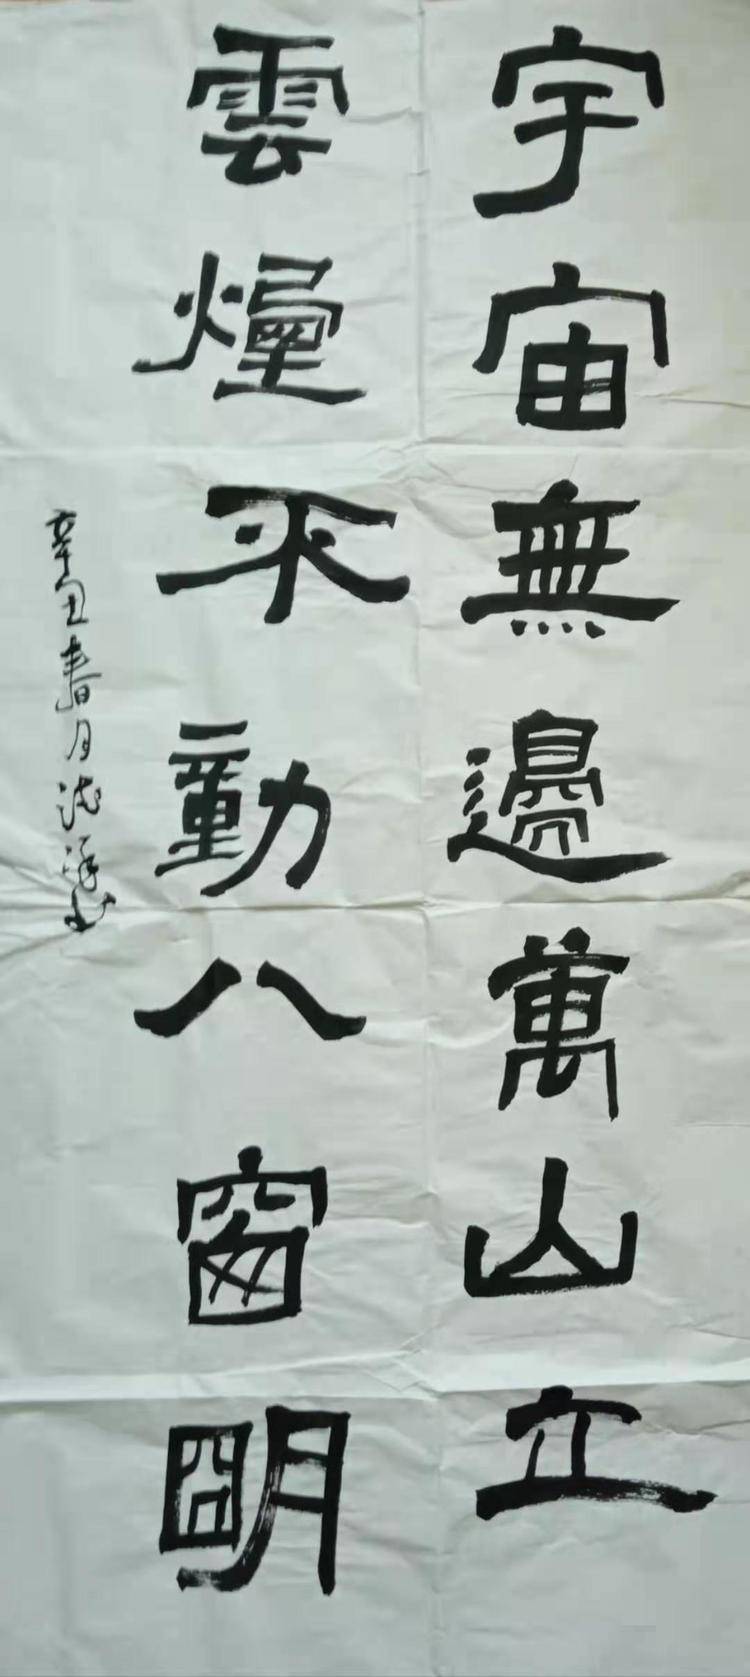 宇宙無邊萬山立
雲煙不動八窗明
辛丑春月